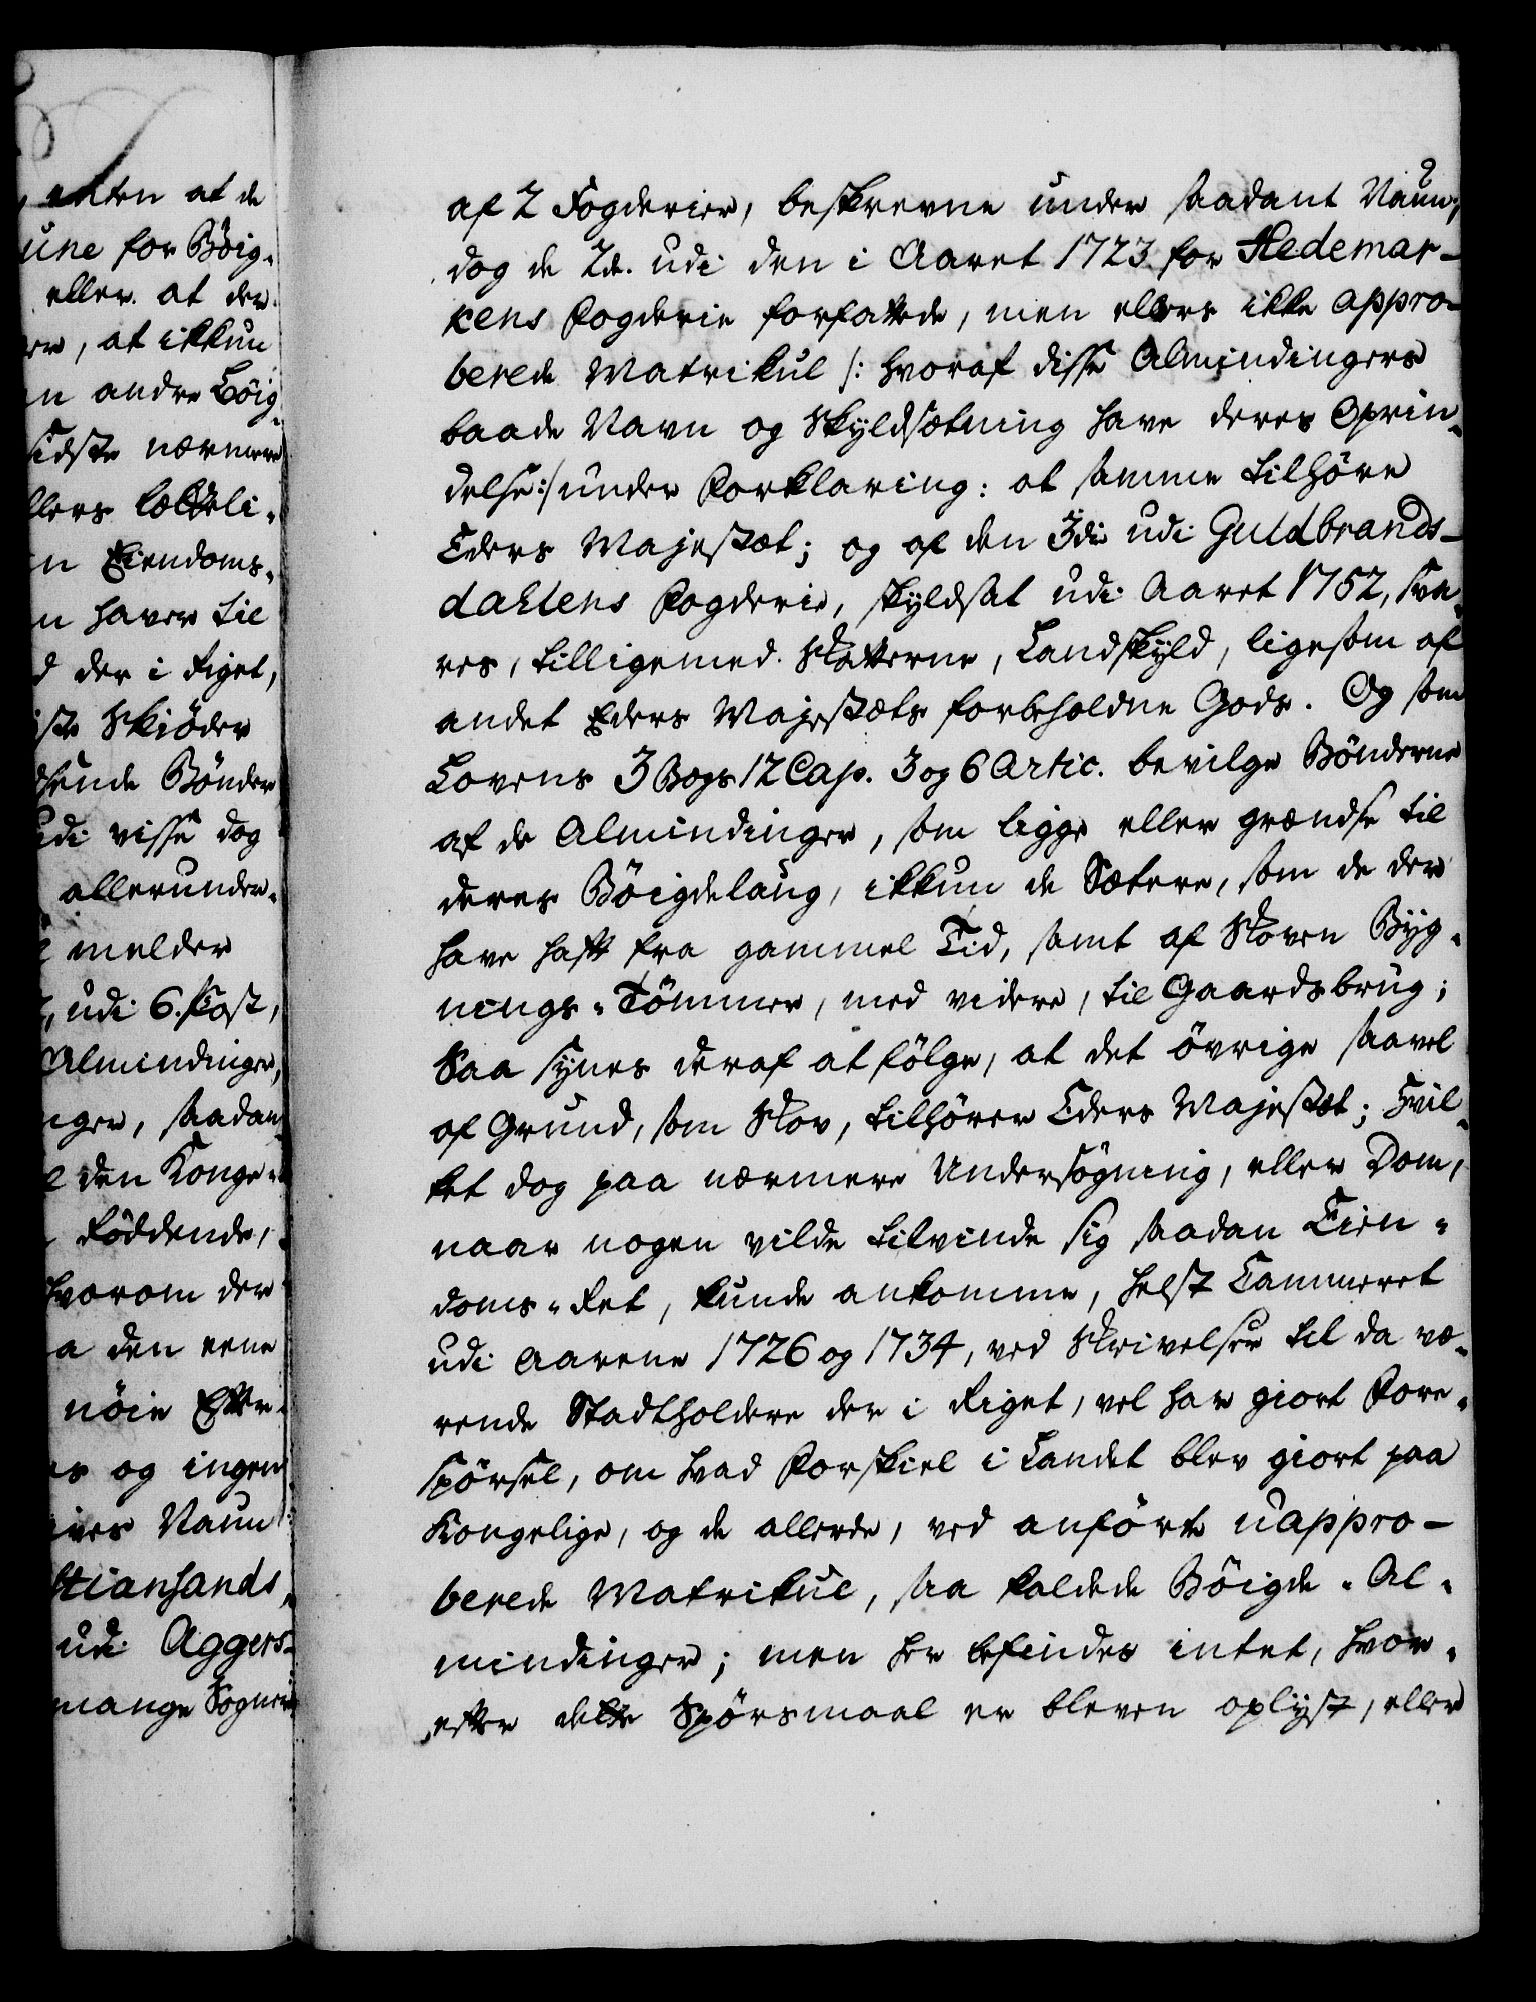 enten at de
une for Böig-
eller at der
er, at ikkun
n andre Böig
sidste nærmere
llers lætteli-
n Eiendoms-
n haver til
d der i Riget,
ste Skiöder
dsende Bönder
udi visse dog
allerunder-
melder
, udi 6. Post,
Almindinger,
nger, saadan
den Konge-
föddende,
hvorom der
a den eene
nöie Efter-
s og ingen
ives Naun
stiansands
udi Aggers-
mange Sogner
af 2 Fogderier, beskrevne under saadant Naun;
dog de 2de. udi den i Aaret 1723 for Hedemar-
kens Fogderie forfattede, men ellers ikke appro-
berede Matrikul /: hvoraf disse Almindingers
baade Navn og Skyldsætning have deres Oprin-
delse :/ under Forklaring: at samme tilhöre
Eders Majestæt; og af den 3die udi Guldbrands-
dahlens Fogderie, skyldsat udi Aaret 1752, sva-
res, tilligemed Skatterne, Landskyld, ligesom af
andet Eders Majestæts forbeholdne Gods. Og som
Lovens 3 Bogs 12 Cap. 3 og 6 Artic. bevilge Bönderne
af de Almindinger, som ligge eller grændse til
deres Böigdelaug, ikkun de Sætere, som de der
have haft fra gammel Tid, samt af Skoven Byg-
nings-Tömmer, med videre, til Gaardsbrug;
Saa synes deraf at fölge, at det övrige saavel
af Grund, som Skov, tilhörer Eders Majestæt; Hvil-
ket dog paa nærmere Undersögning, eller Dom,
naar nogen vilde tilvinde sig saadan Eien-
doms-Ret, kunde ankomme, helst Cammeret
udi Aarene 1726 og 1734, ved Skrivelser til da væ-
rende Stadtholdere der i Riget, vel har giort Fore-
spörsel, om hvad Forskiel i Landet blev giort paa
Kongelige, og de allerede, ved anförte uappro-
berede Matrikul, saa kaldede Böigde-Al-
mindinger; men her befindes intet, hvor-
efter dette Spörsmaal er bleven oplyst, eller